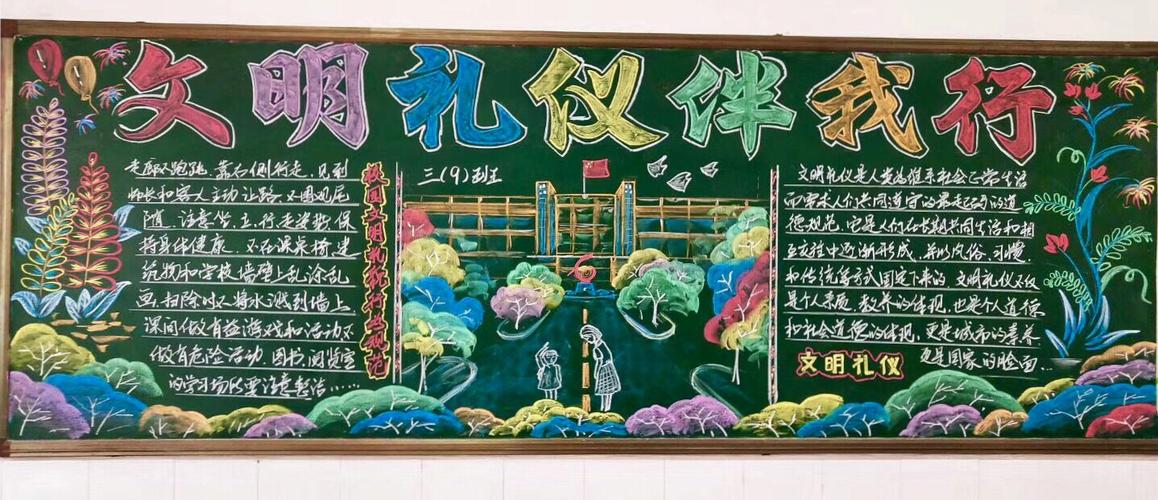 文明礼仪伴我行
走廊不跑跳，靠右侧行走，见到
师长和客人主动让路，不围观尾
随，注意坐、立、行走姿势，保
持身体健康。不在课桌椅、建
筑物和学校墙壁上乱涂乱
画，扫除时不将水溅到墙上
课间做有益游戏和活动，不
做有危险活动，图书、阅览室
的学习场所要注意整洁……
校园文明礼仪行为规范
三(9)班
6
文明礼仪是人类为维系社会正常生活
而要求人们共同遵守的最起码的道
德规范，它是人们在长期共同生活和相
互交往中逐渐形成，并以风俗、习惯
和传统等方式固定下来的。文明礼仪不仅
是个人素质、教养的体现，也是个人道德
和社会道德的体现，更是城市的素养
更是国家的脸面…
文明礼仪